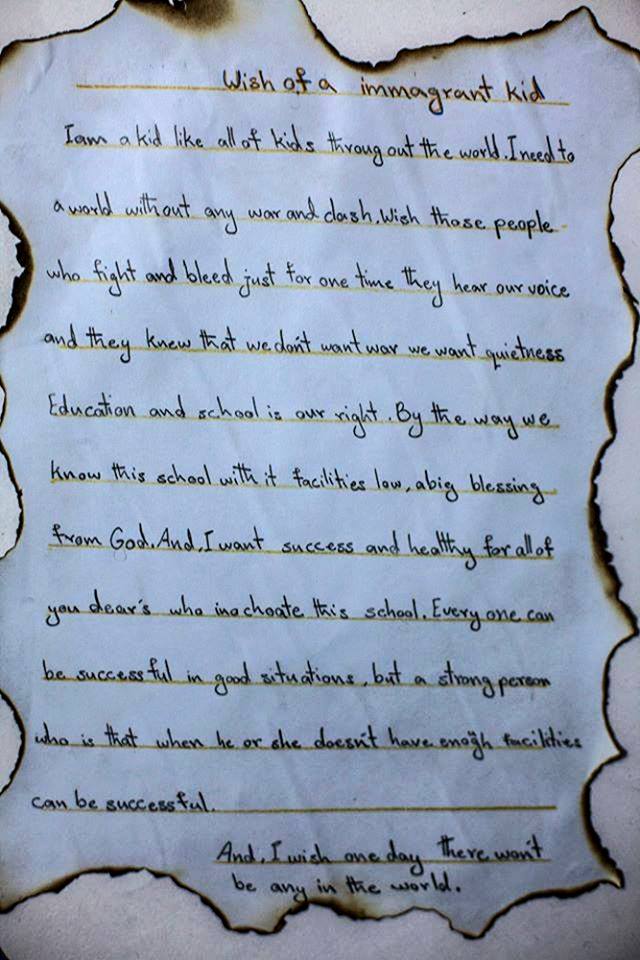 Wish of a immagrant kid
I am a kid like all of kids throug out the world. I need to
a world without any war and clash. Wish those people
who fight and bleed just for one time they hear our voice
and they knew that we don't want war we want quietness
Education and school is our right. By the way we
know this school with it facilities low, a big blessing
from God. And, I want success and healthy for all of
you dear's who inachoate this school. Every one can
be successful in good situations, but a strong person
who is that when he or she doesn't have enogh facilities
can be successful.
And, I wish one day there won't
be any in the world.